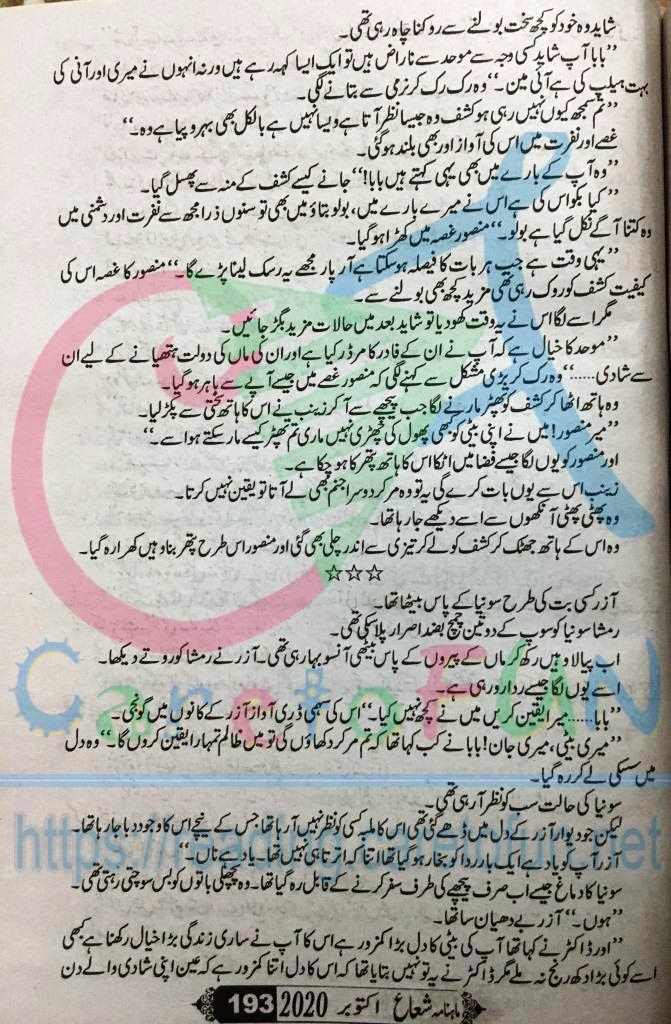 شاید وہ خود کو کچھ سخت بولنے سے روکنا چاہ رہی تھی۔
”بابا آپ شاید کسی وجہ سے موحد سے ناراض ہیں تو ایک ایسا کہہ رہے ہیں ورنہ انہوں نے میری اور آنی کی
بہت ہیلپ کی ہے آئی مین۔“ وہ رک رک کر نرمی سے بتانے لگی۔
”تم سمجھ کیوں نہیں رہی ہو کشف وہ جیسا نظر آتا ہے ویسا نہیں ہے بالکل بھی بہروپیا ہے وہ۔“
غصے اور نفرت میں اس کی آواز اور بھی بلند ہو گئی۔
”وہ آپ کے بارے میں بھی یہی کہتے ہیں بابا!“ جانے کیسے کشف کے منہ سے پھسل گیا۔
”کیا بکواس کی ہے اس نے میرے بارے میں، بولو بتاؤ میں بھی تو سنوں ذرا مجھ سے نفرت اور دشمنی میں
وہ کتنا آگے نکل گیا ہے بولو۔“ منصور غصہ میں کھڑا ہو گیا۔
”یہی وقت ہے جب ہر بات کا فیصلہ ہو سکتا ہے آر پار مجھے یہ رسک لینا پڑے گا۔“ منصور کا غصہ اس کی
کیفیت کشف کو روک رہی تھی مزید کچھ بھی بولنے سے۔
مگر اسے لگا اس نے یہ وقت کھو دیا تو شاید بعد میں حالات مزید بگڑ جائیں۔
”موحد کا خیال ہے کہ آپ نے ان کے فادر کا مرڈر کیا ہے اور ان کی ماں کی دولت ہتھیانے کے لیے ان
سے شادی.....“ وہ رک کر بڑی مشکل سے کہنے لگی کہ منصور غصے میں جیسے آپے سے باہر ہو گیا۔
وہ ہاتھ اٹھا کر کشف کو تھپڑ مارنے لگا جب پیچھے سے آ کر زینب نے اس کا ہاتھ سختی سے پکڑ لیا۔
”میر منصور! میں نے اپنی بیٹی کو کبھی پھول کی چھڑی نہیں ماری تم تھپڑ کیسے مار سکتے ہو اسے۔“
اور منصور کو یوں لگا جیسے فضا میں اٹکا اس کا ہاتھ پتھر کا ہو چکا ہے۔
زینب اس سے یوں بات کرے گی یہ تو وہ مر کر دوسرا جنم بھی لے آتا تو یقین نہیں کرتا۔
وہ پھٹی پھٹی آنکھوں سے اسے دیکھے جا رہا تھا۔
وہ اس کے ہاتھ جھٹک کر کشف کو لے کر تیزی سے اندر چلی بھی گئی اور منصور اس طرح پتھر بنا وہیں کھڑا رہ گیا۔
☆☆☆
آزر کسی بت کی طرح سونیا کے پاس بیٹھا تھا۔
رمشا سونیا کو سوپ کے دو تین چمچ بضد اصرار پلا سکی تھی۔
اب پیالا وہیں رکھ کر ماں کے پیروں کے پاس بیٹھی آنسو بہا رہی تھی۔ آزر نے رمشا کو روتے دیکھا۔
اسے یوں لگا جیسے ردا رو رہی ہے۔
”بابا...... میرا یقین کریں میں نے کچھ نہیں کیا۔“ اس کی سہمی ڈری آواز آزر کے کانوں میں گونجی۔
”میری بیٹی، میری جان! بابا نے کب کہا تھا کہ تم مر کر دکھاؤ گی تو میں ظالم تمہارا یقین کروں گا۔“ وہ دل
میں سسکی لے کر رہ گیا۔
سونیا کی حالت سب کو نظر آ رہی تھی۔
لیکن جو دیوار آزر کے دل میں ڈھے گئی تھی اس کا ملبہ کسی کو نظر نہیں آ رہا تھا، جس کے نیچے اس کا وجود دبا جا رہا تھا۔
”آزر آپ کو یاد ہے ایک بار ردا کو بخار ہو گیا تھا اتنا کہ اترتا ہی نہیں تھا۔ یاد ہے ناں۔“
سونیا کا دماغ جیسے اب صرف پیچھے کی طرف سفر کرنے کے قابل رہ گیا تھا۔ وہ پچھلی باتوں کو بس سوچتی رہتی تھی۔
”ہوں۔“ آزر بے دھیان سا تھا۔
”اور ڈاکٹر نے کہا تھا آپ کی بیٹی کا دل بڑا کمزور ہے اس کا آپ نے ساری زندگی بڑا خیال رکھنا ہے کبھی
اسے کوئی بڑا دکھ رنج نہ ملے مگر ڈاکٹر نے یہ تو نہیں بتایا تھا کہ اس کا دل اتنا کمزور ہے کہ عین اپنی شادی والے دن
ماہنامہ شعاع اکتوبر 2020 193
CaretoFUN